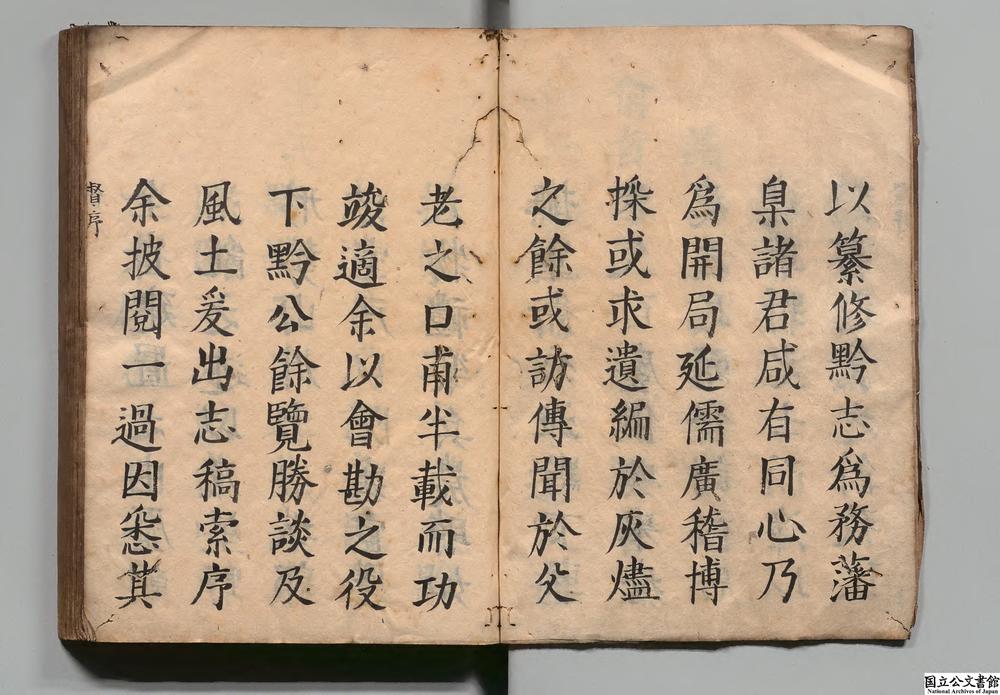 以纂修黔志爲務藩
臬諸君咸有同心乃
爲開局延儒廣稽博
採或求遺編於灰燼
之餘或訪傳聞於父
老之口甫半載而功
竣適余以會勘之役
下黔公餘覽勝談及
風土爰出志稿索序
余披閱一過因悉其
督序
国立公文書館
National Archives of Japan